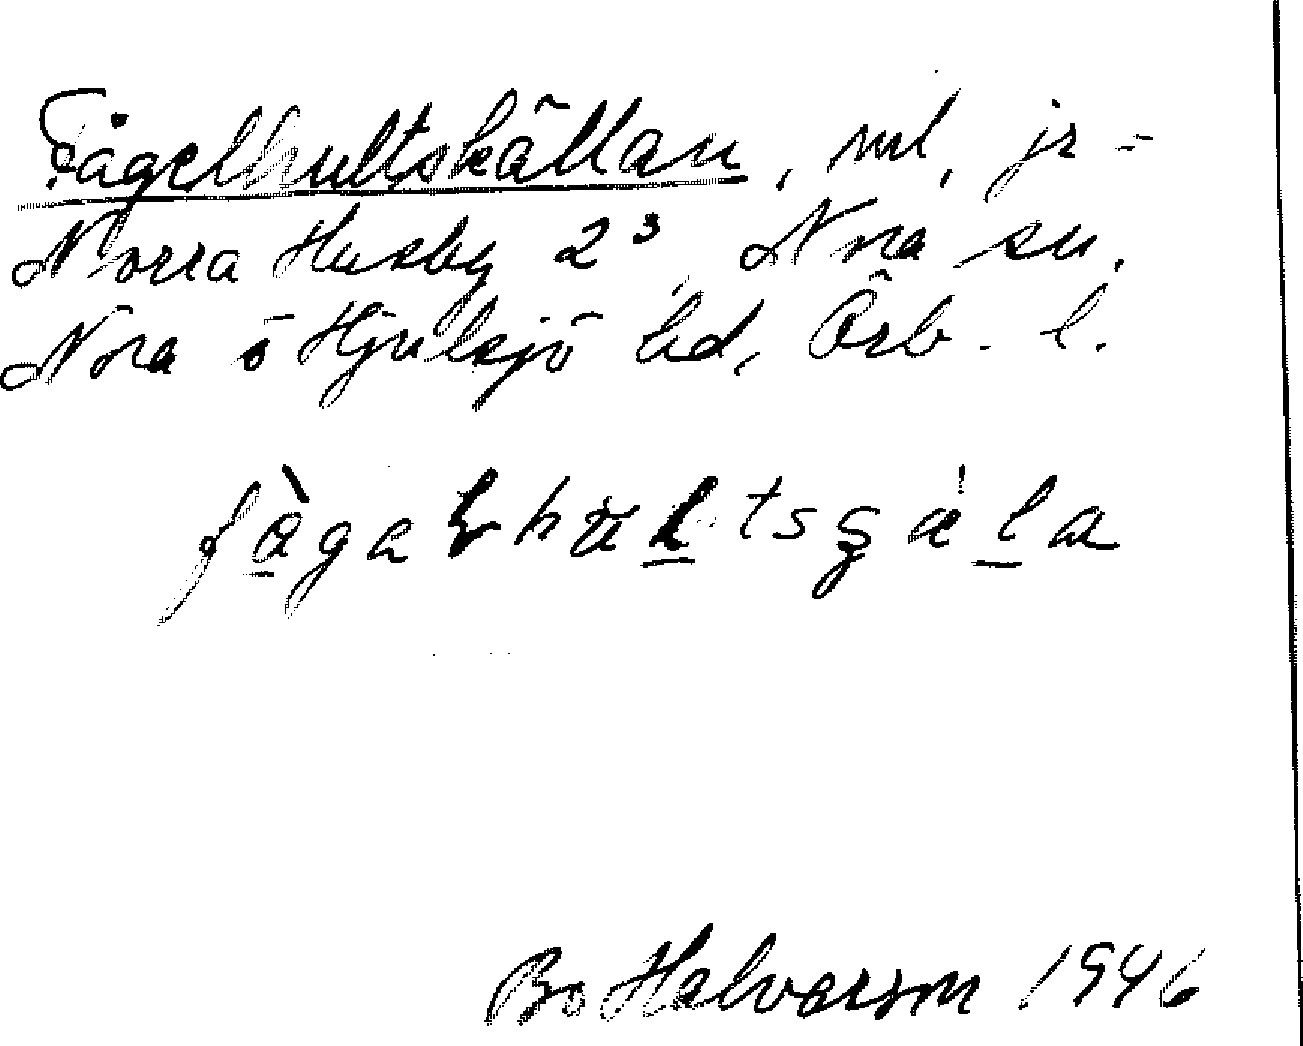 Fågelhultskällan, ml, jr =
Norra Husby 2³, Nora sn.
Nora o Hjulsjö hd, Örb. l.
Bo Halvarson 1946